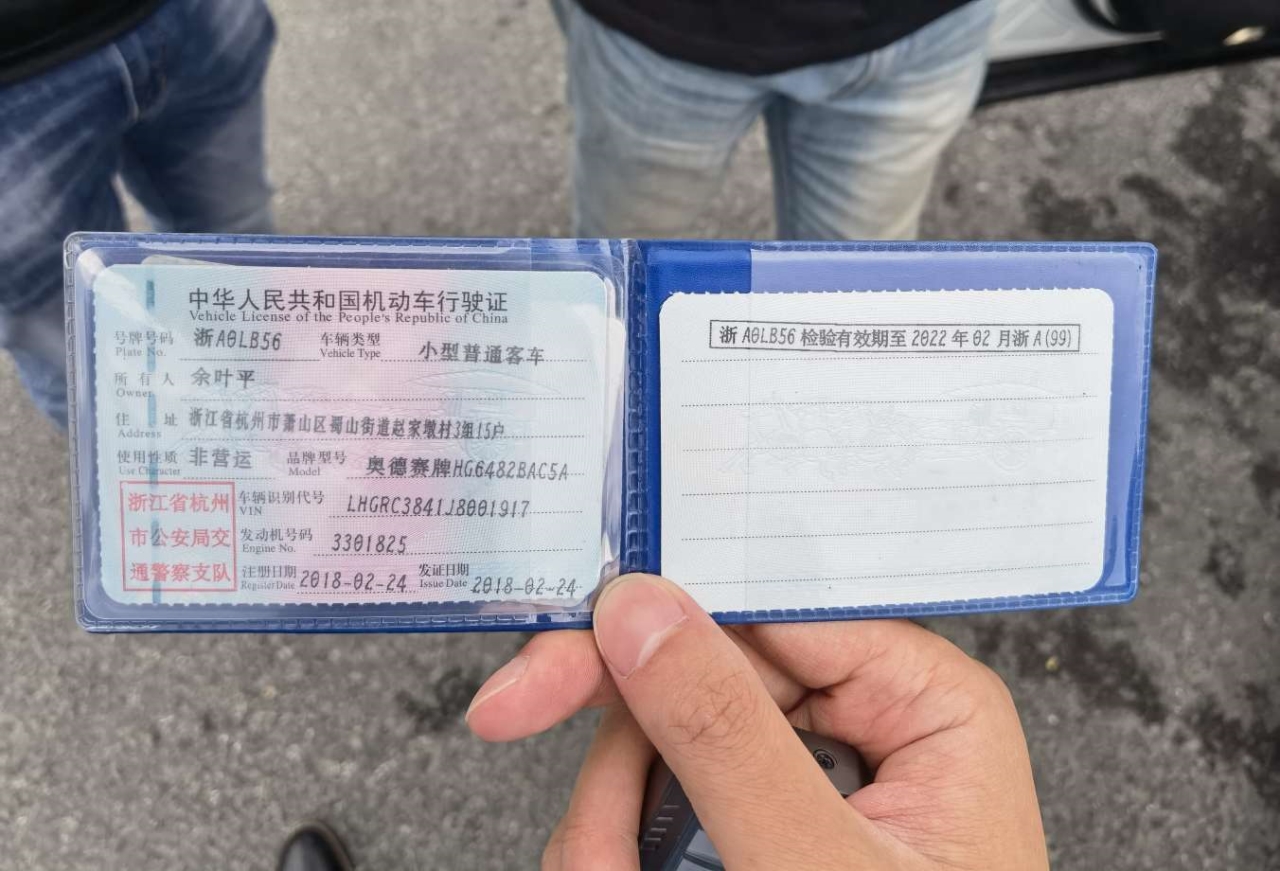 中华人民共和国机动车行驶证
Vehicle License of the People's Republic of China
号牌号码 浙A0LB56 车辆类型 小型普通客车
Plate No. Vehicle Type
所有人 余叶平
Owner
住址 浙江省杭州市萧山区蜀山街道赵家墩村3组15户
Address
使用性质 非营运 品牌型号 奥德赛牌HG6482BAC5A
Use Character Model
浙江省杭州
市公安局交
通警察支队
车辆识别代号 LHGRC3841J8001917
VIN
发动机号码 3301825
Engine No.
注册日期 2018-02-24 发证日期 2018-02-24
Register Date Issue Date
浙A0LB56 检验有效期至 2022 年 02 月浙A(99)